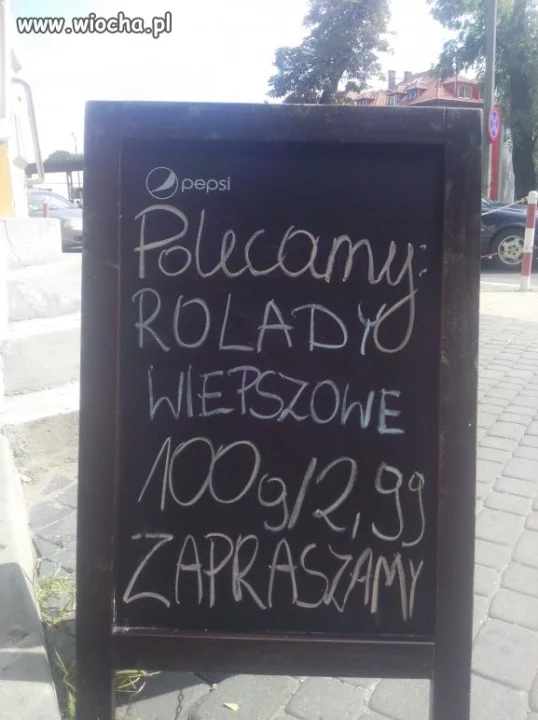 www.wiocha.pl
pepsi
Polecamy:
ROLADY
WIEPSZOWE
100g/2,99
ZAPRASZAMY